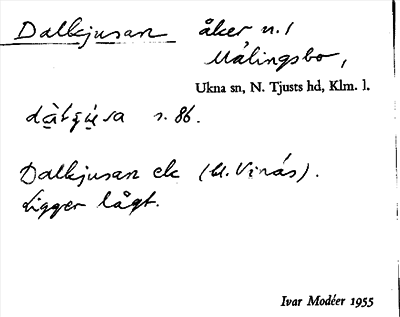 Dalkjusan åker n. l
Målingsbo,
Ukna sn, N. Tjusts hd, Klm. l.
s. 86.
Dalkjusan ek (l. Vinås).
Ligger lågt.
Ivar Modéer 1955